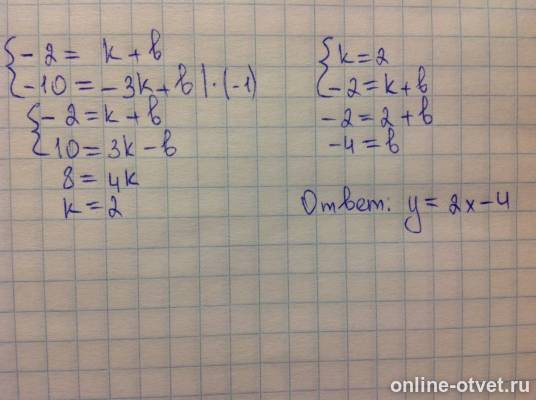 {-2 = k + b
{-10 = -3k + b | · (-1)
{-2 = k + b
{10 = 3k - b
8 = 4k
k = 2
{k = 2
{-2 = k + b
-2 = 2 + b
-4 = b
Ответ: y = 2x - 4
online-otvet.ru